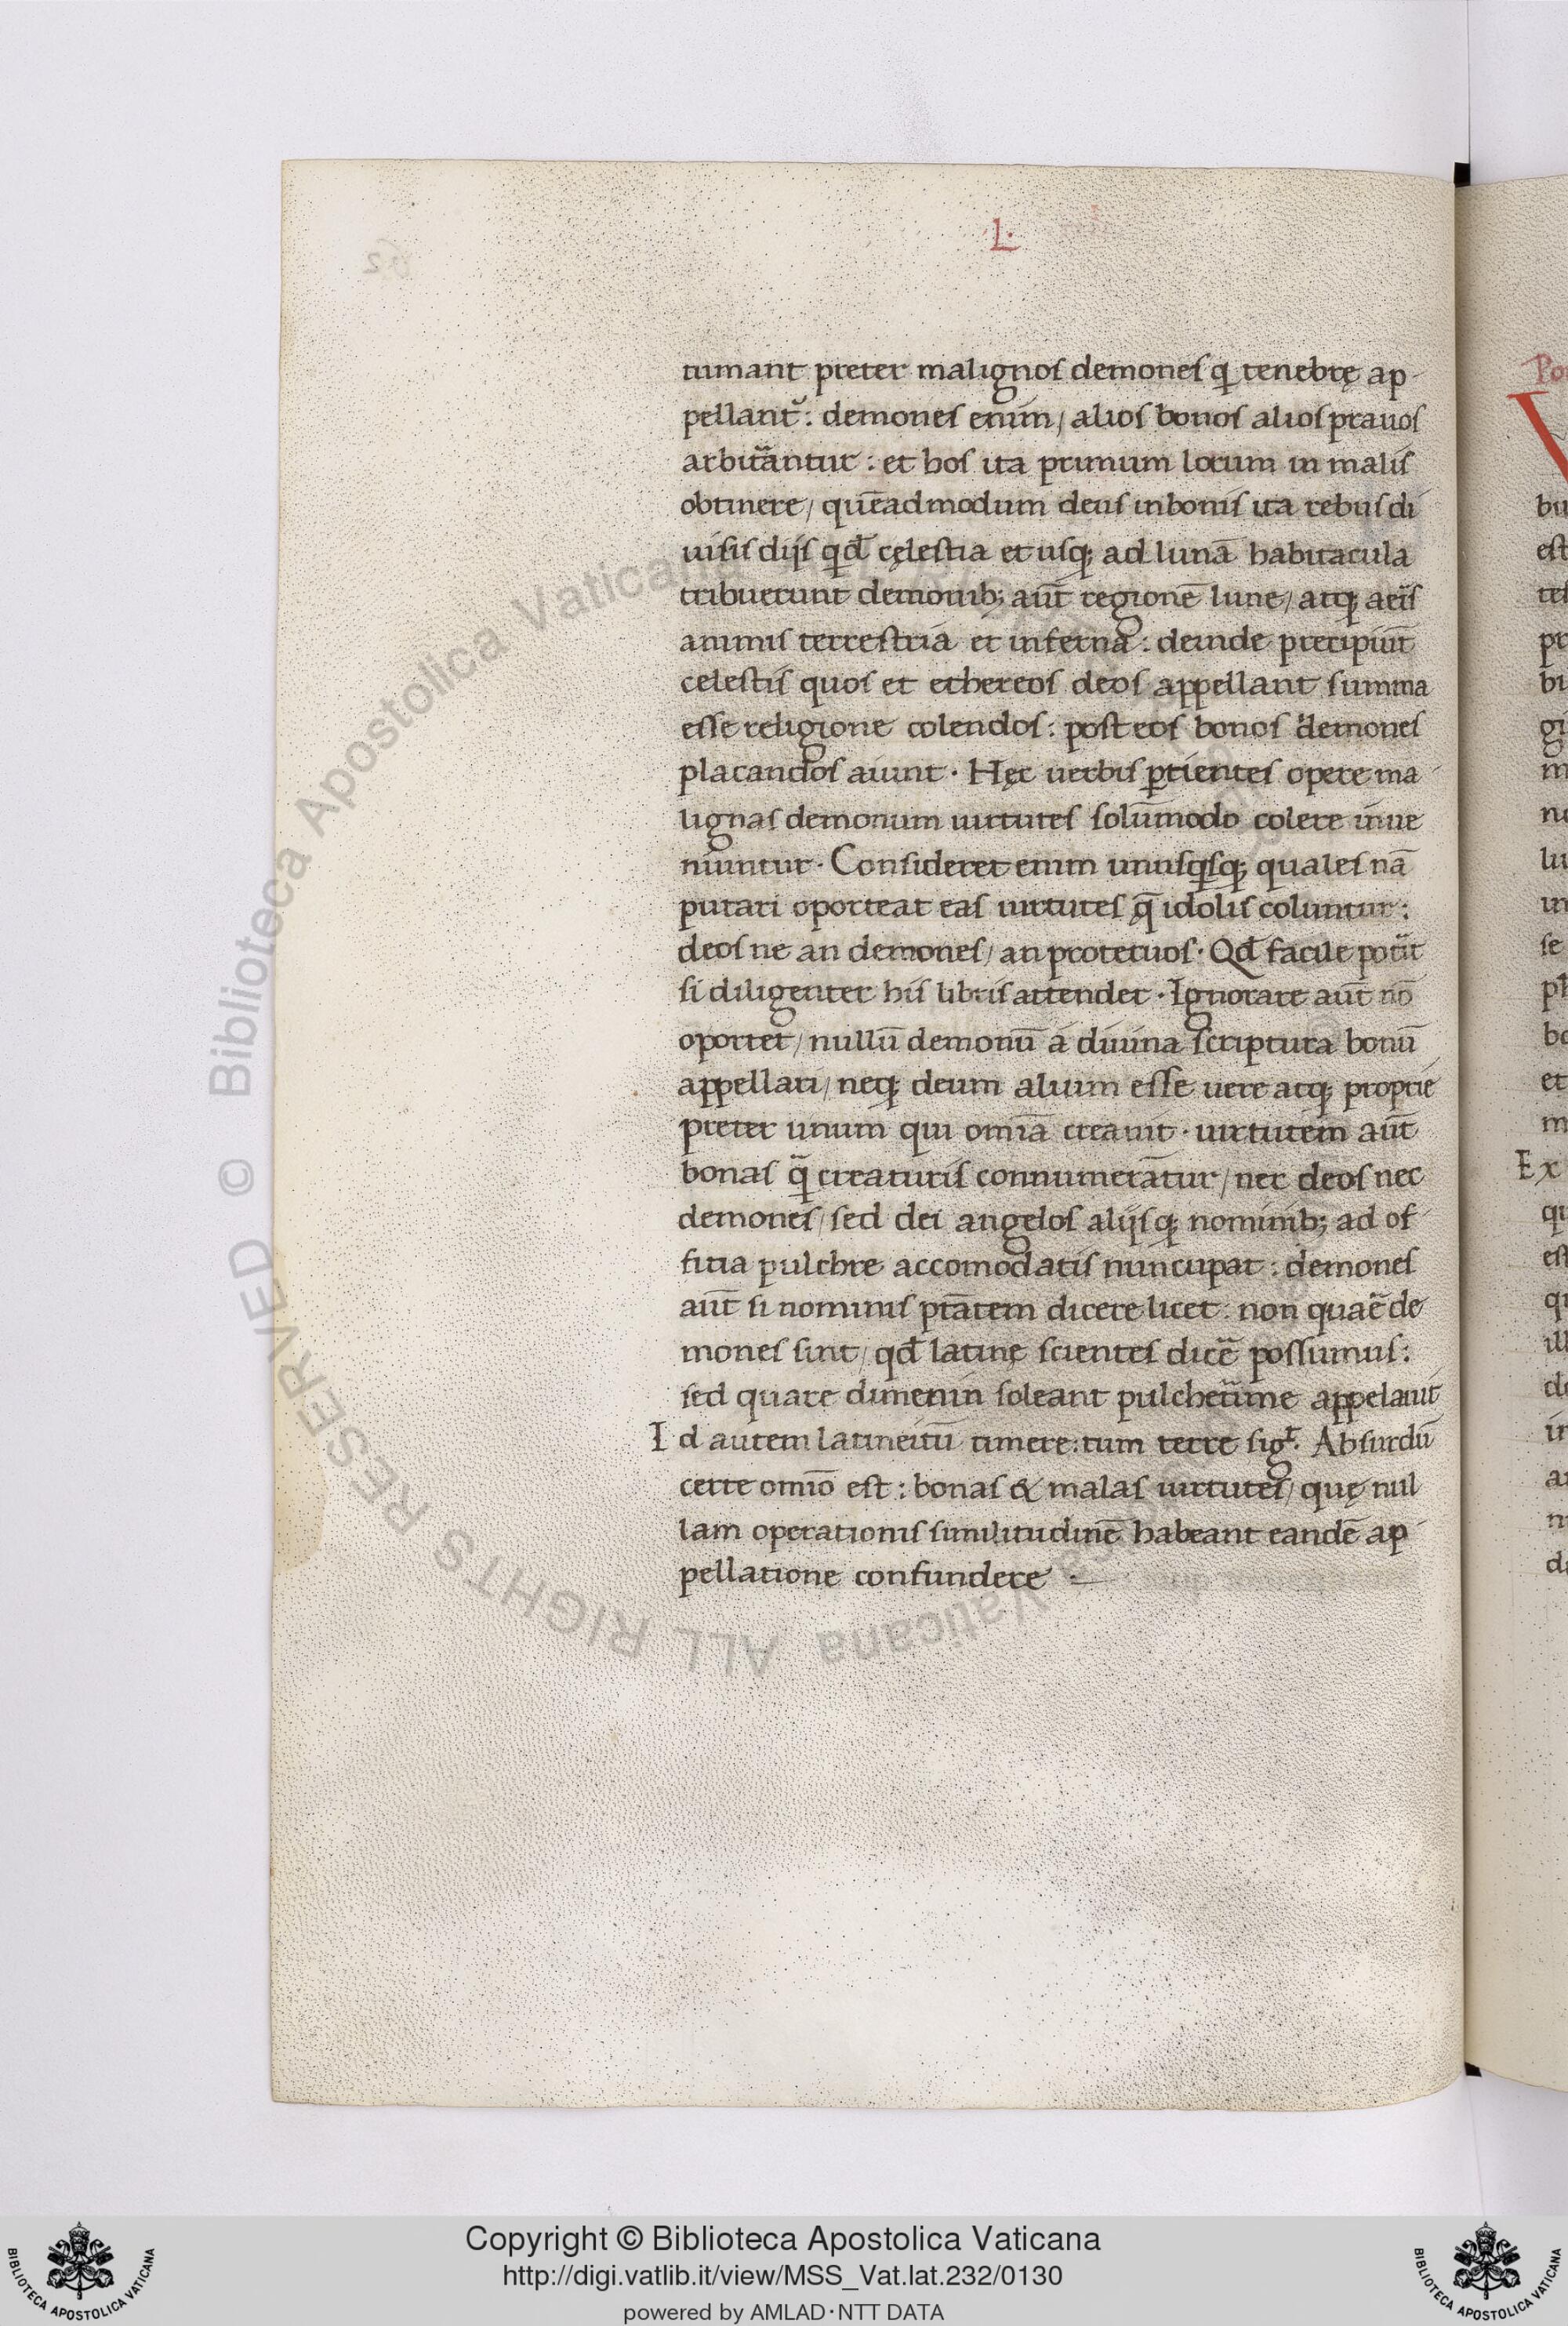 L·
tumant preter malignos demones qi tenebrę ap-
pellantᷣ: demones enim/ alios bonos alios prauos
arbitᷓantur: et hos ita primum locum in malis
obtinere/ quēadmodum deus in bonis ita rebus di
uisis dijs qd̄ cęlestia et usq; ad lunā habitacula
tribuerunt demonib; aūt regionē lune/ atq; aeris
animis terrestria et inferna: deinde precipiūt
celestis quos et ethereos deos appellant summa
esse religione colendos: post eos bonos demones
placandos aiunt· Hęc uerbis ꝑtientes opere ma-
lignas demonum uirtutes solūmodo colere inue
niuntur· Consideret enim unusqisq; quales nā
putari oporteat eas uirtutes q̄ idolis coluntur:
deos ne an demones/ an proteruos· Qd̄ facile potᷓit
si diligenter his libris attendet· Ignorare aūt nō
oportet/ nullū demonū a diuina scriptura bonū
appellari/ neq; deum alium esse uere atq; proprie
preter unum qui omīa creauit· uirtutem aūt
bonas q̄ creaturis connumerātur/ nec deos nec
demones/ sed dei angelos alijsq; nominib; ad of-
fitia pulchre accomodatis nuncupat: demones
aūt si nominis ptātem dicere licet: non quaē de-
mones sint/ qd̄ latinę scientes dicē possumus:
sed quare dimenin soleant pulcherᷓime appelauit
Id autem latineitū timere: tum terre sigᵗ· Absurdū
certe omīo est: bonas & malas uirtutes/ quę nul
lam operationis similitudinē habeant eandē ap-
pellatione confundere ·
Ex
Copyright © Biblioteca Apostolica Vaticana
http://digi.vatlib.it/view/MSS_Vat.lat.232/0130
powered by AMLAD·NTT DATA
BIBLIOTECA APOSTOLICA VATICANA
BIBLIOTECA APOSTOLICA VATICANA
© Biblioteca Apostolica Vaticana ALL RIGHTS RESERVED